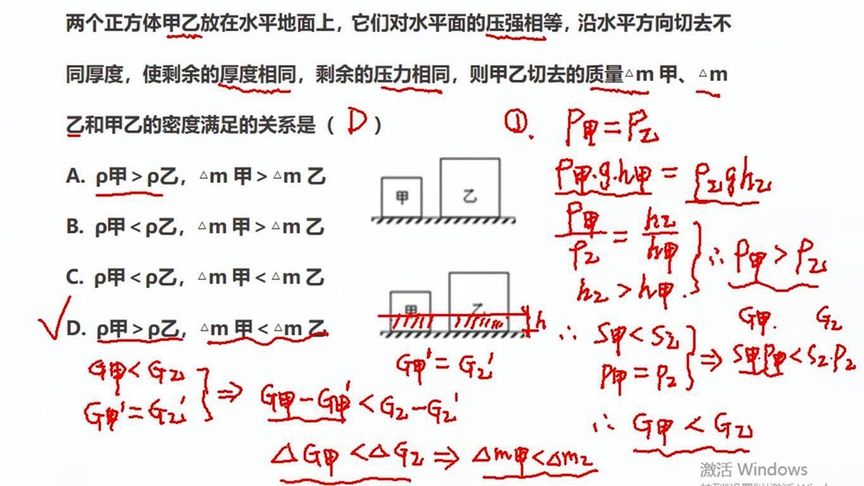 两个正方体甲乙放在水平地面上，它们对水平面的压强相等，沿水平方向切去不
同厚度，使剩余的厚度相同，剩余的压力相同，则甲乙切去的质量△m 甲、△m
乙和甲乙的密度满足的关系是（ D ）
A. ρ甲＞ρ乙，△m 甲＞△m 乙
B. ρ甲＜ρ乙，△m 甲＞△m 乙
C. ρ甲＜ρ乙，△m 甲＜△m 乙
√ D. ρ甲＞ρ乙，△m 甲＜△m 乙
甲
乙
甲
乙
h
①. P甲=P乙
ρ甲·g·h甲 = ρ乙gh乙
ρ甲/ρ乙 = h乙/h甲
h乙>h甲.
∴ ρ甲>ρ乙
G甲. G乙
∴ S甲<S乙
P甲=P乙
⇒ S甲·P甲<S乙·P乙
∴ G甲<G乙
G甲'=G乙'
G甲<G乙
G甲'=G乙'
⇒ G甲-G甲'<G乙-G乙'
△G甲<△G乙 ⇒ △m甲<△m乙
激活 Windows